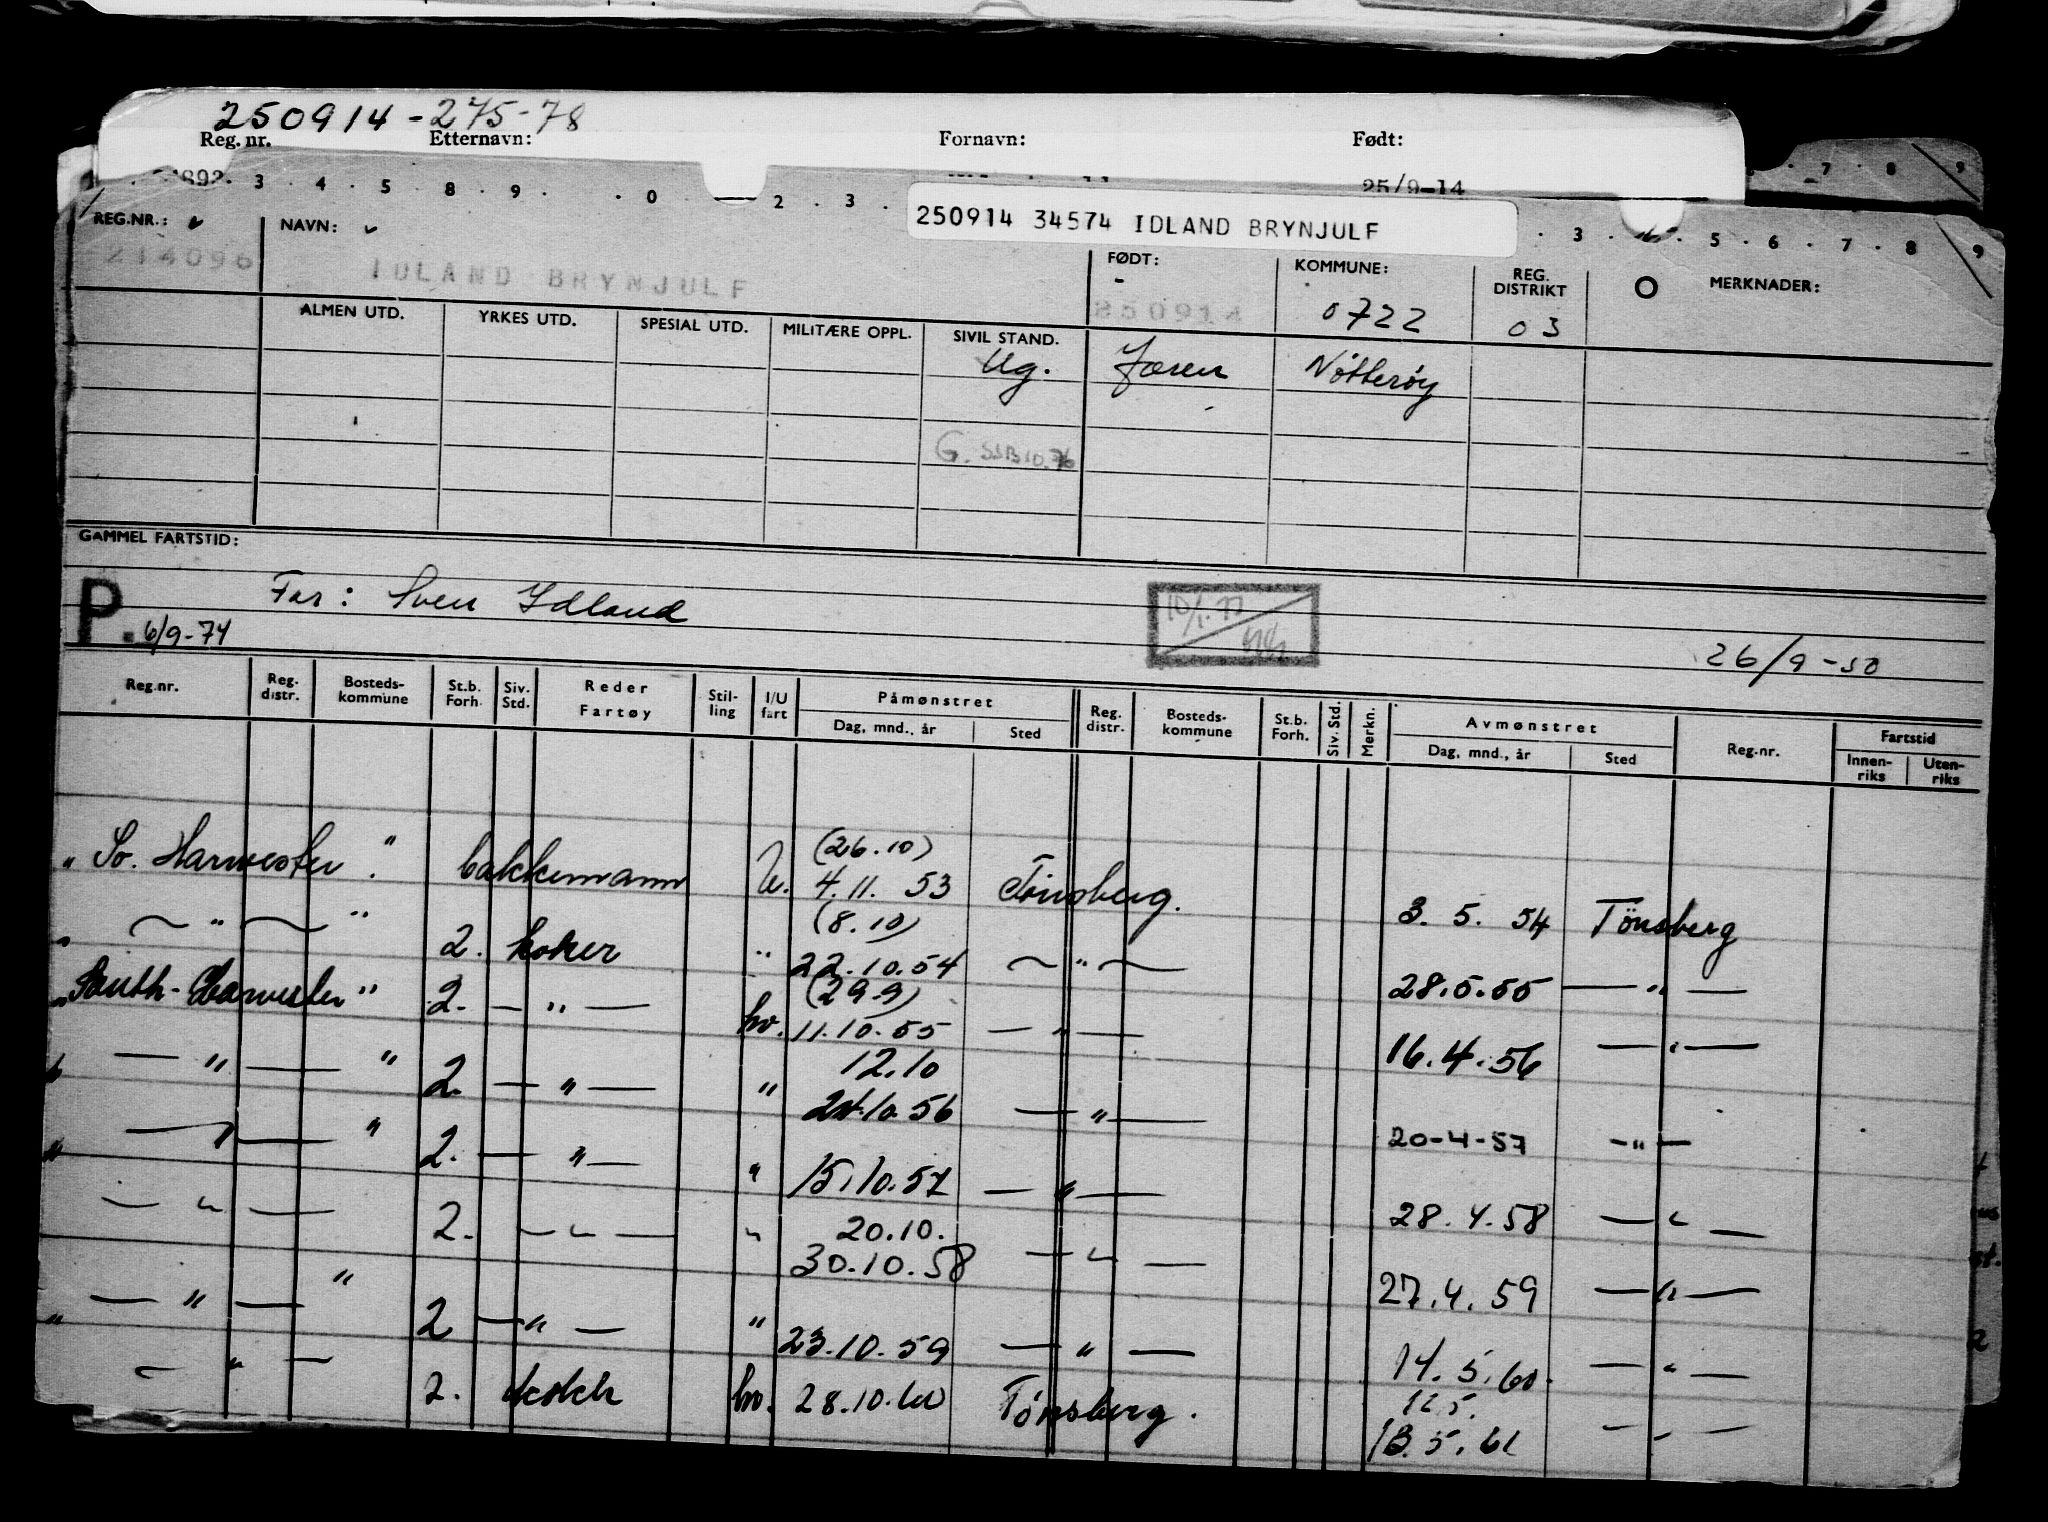 250914-275-78
Reg. nr. Etternavn: Fornavn: Født:
25/9-14
3 . 4 . 5 . 8 . 9 . . 0 2 . 3 . . 3 . . 5 . 6 . 7 . 8 9
250914 34574 IDLAND BRYNJULF
REG.NR.: NAVN: FØDT: KOMMUNE: REG. DISTRIKT MERKNADER:
214096 IDLAND BRYNJULF 250914 0722 03
ALMEN UTD. YRKES UTD. SPESIAL UTD. MILITÆRE OPPL. SIVIL STAND.
Ug. Jæren Nøtterøy
G. SSB 10.76
GAMMEL FARTSTID:
Far: Sven Idland
P. 6/9-74 10/1.77 26/9-50
Reg.nr. Reg. distr. Bosteds-kommune St.b. Forh. Siv. Std. Reder Fartøy Stil-ling I/U fart Påmønstret Dag, mnd., år Sted Reg. distr. Bosteds-kommune St.b. Forh. Siv. Std. Merkn. Avmønstret Dag, mnd., år Sted Reg.nr. Fartstid Innen-riks Uten-riks
(26.10)
" So. Harvester " bakkemann U. 4.11. 53 Tönsberg. 3. 5. 54 Tönsberg
(8.10)
— " — " 2. koker " 22.10.54 — " — 28.5.55 — " —
(29.9)
" South-Harvester " 2. — " — hv. 11.10.55 — " — 16.4.56 — " —
12.10
— " — " 2. — " — " 24.10.56 — " — 20-4-57 — " —
" — " — " 2. — " — " 15.10.57 — " — 28.4.58 — " —
20.10.
— " — 2. — " — " 30.10.58 — " — 27.4.59 — " —
" — " — " 2 — " — " 23.10.59 — " — 14.5.60. — " —
— " — 2. kokk hv. 28.10.60 Tönsberg. 13.5.61 — " —